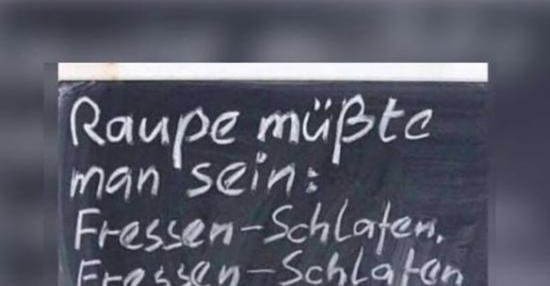 Raupe müßte
man sein:
Fressen-Schlafen.
Fressen-Schlafen